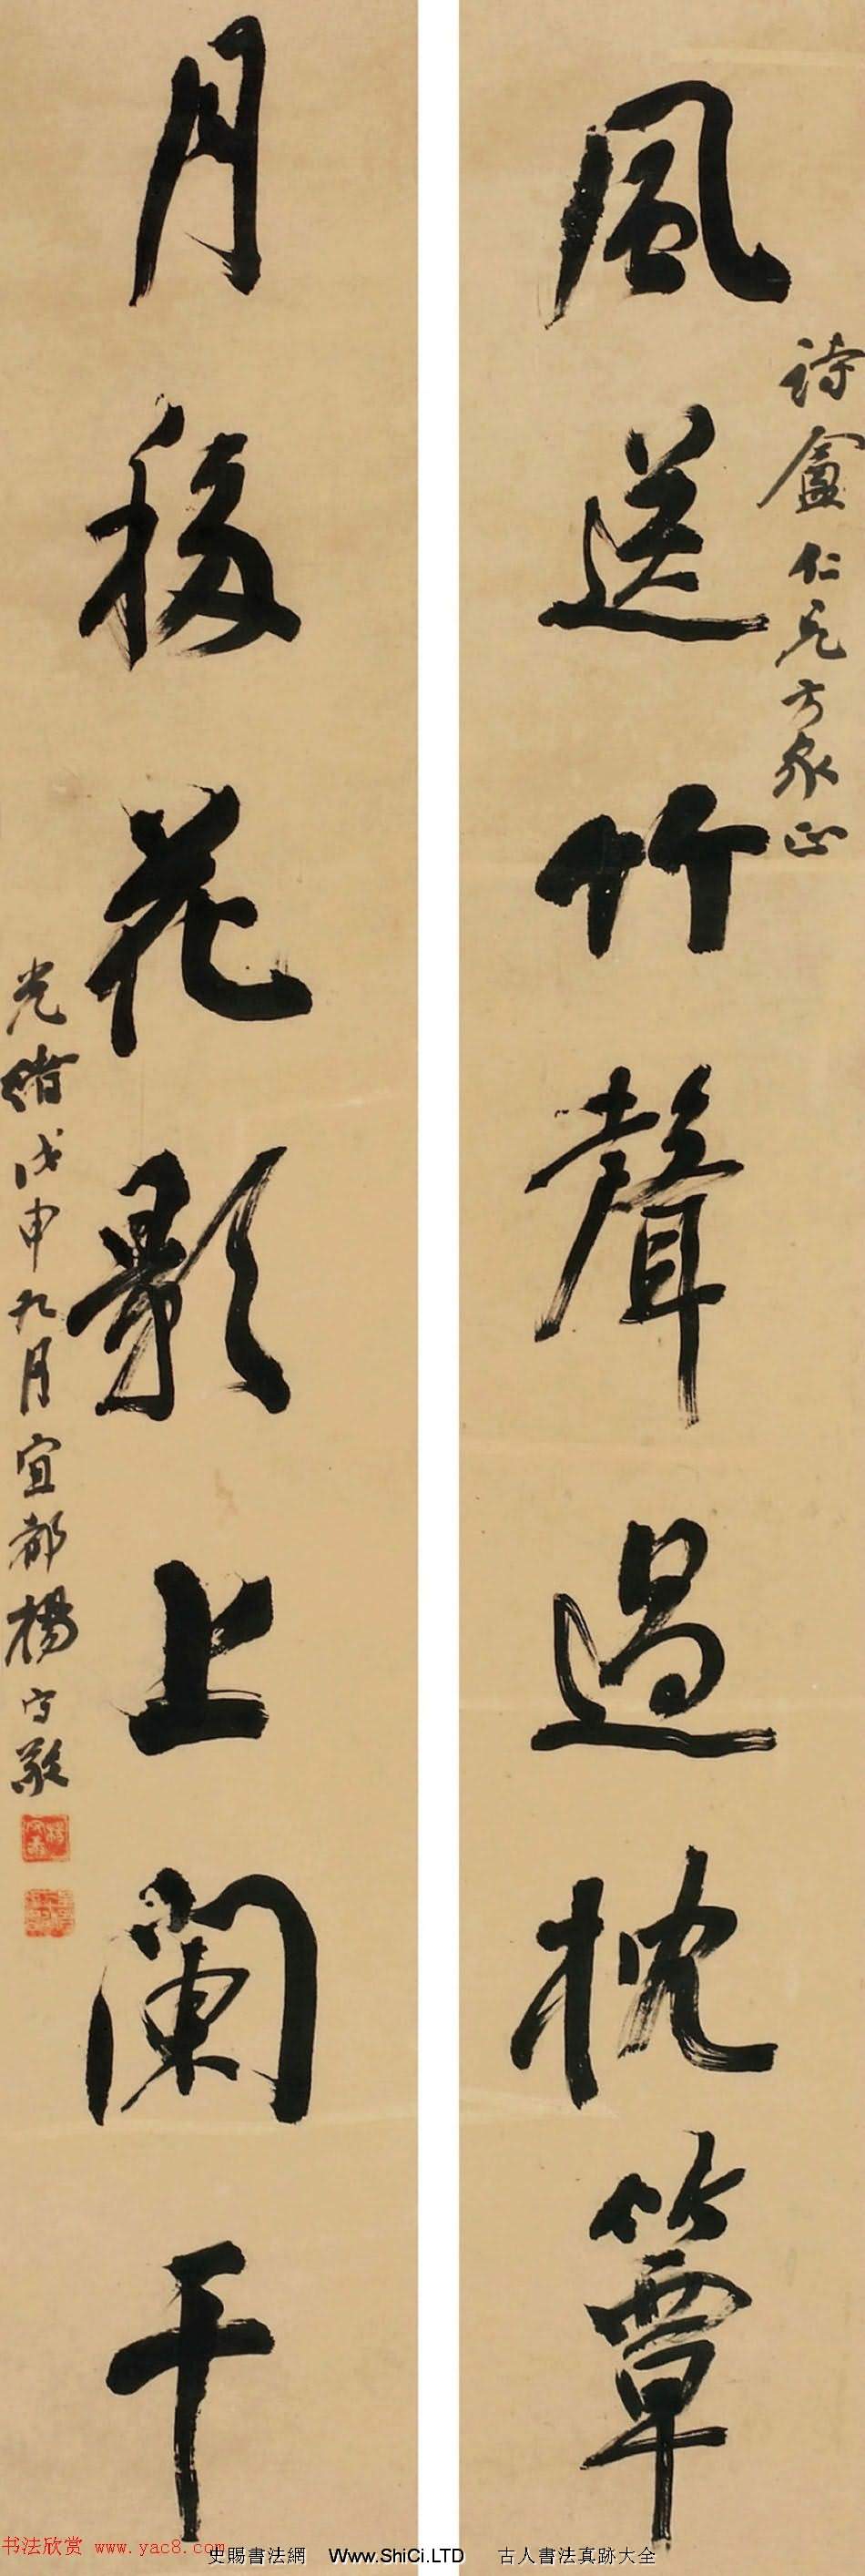 風送竹聲過枕簟
詩盦仁兄方家正
月移花影上闌干
光緒戊申九月宜都楊守敬
书法欣赏 www.yac8.com
史賜書法網 Www.ShiCi.LTD 古人書法真跡大全